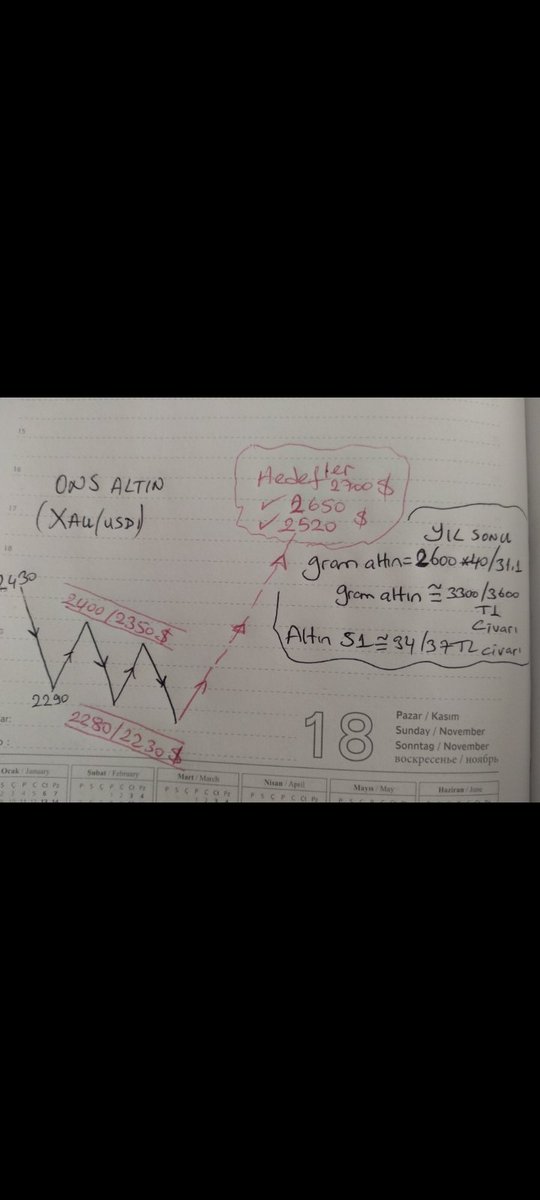 15
16
17
18
ONS ALTIN
(XAU/USD)
Hedefler
2700 $
✓ 2650
✓ 2520 $
YIL SONU
gram altın = 2600*40/31.1
gram altın ≅ 3300/3600
TL
Civarı
Altın S1 ≅ 34/37 TL civarı
2430
2400/2350 $
2290
2280/2230 $
18
Pazar / Kasım
Sunday / November
Sonntag / November
воскресенье / ноябрь
ar:
o :
Ocak / January
Şubat / February
Mart / March
Nisan / April
Mayıs / May
Haziran / June
S Ç P C Ct Pz
P S Ç P C Ct Pz
P S Ç P C Ct Pz
P S Ç P C Ct Pz
P S Ç P C Ct Pz
P S Ç P C Ct Pz